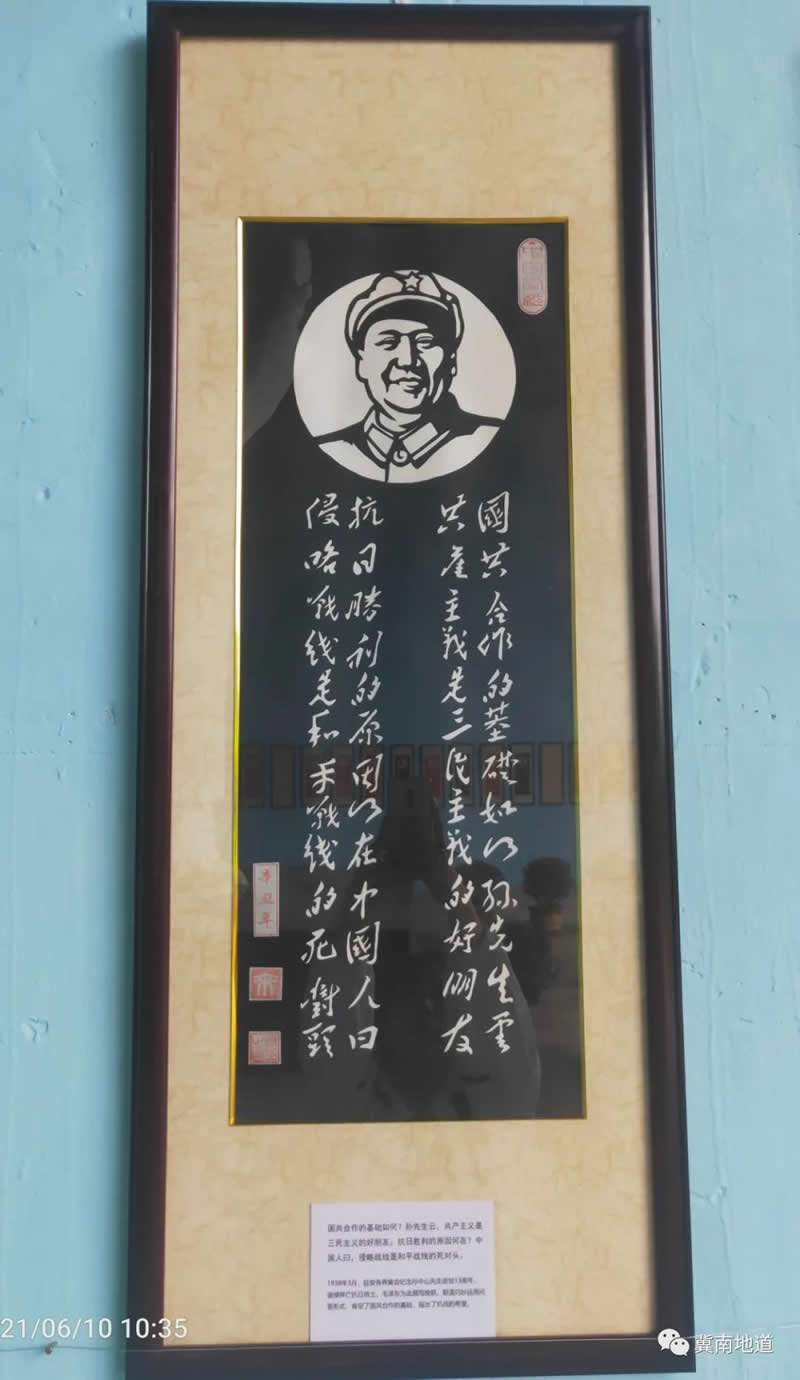 國共合作的基礎如何孫先生雲
共產主義是三民主義的好朋友
抗日勝利的原因何在中國人曰
侵略戰綫是和平戰綫的死對頭
辛丑年
国共合作的基础如何?孙先生云,共产主义是
三民主义的好朋友;抗日胜利的原因何在?中
国人曰,侵略战线是和平战线的死对头。
1938年3月,延安各界集会纪念孙中山先生逝世13周年,
阵亡抗日将士。毛泽东为此撰写挽联。巧妙运用问
答形式,肯定了国共合作的基础,指出了抗战的希望。
21/06/10 10:35
冀南地道